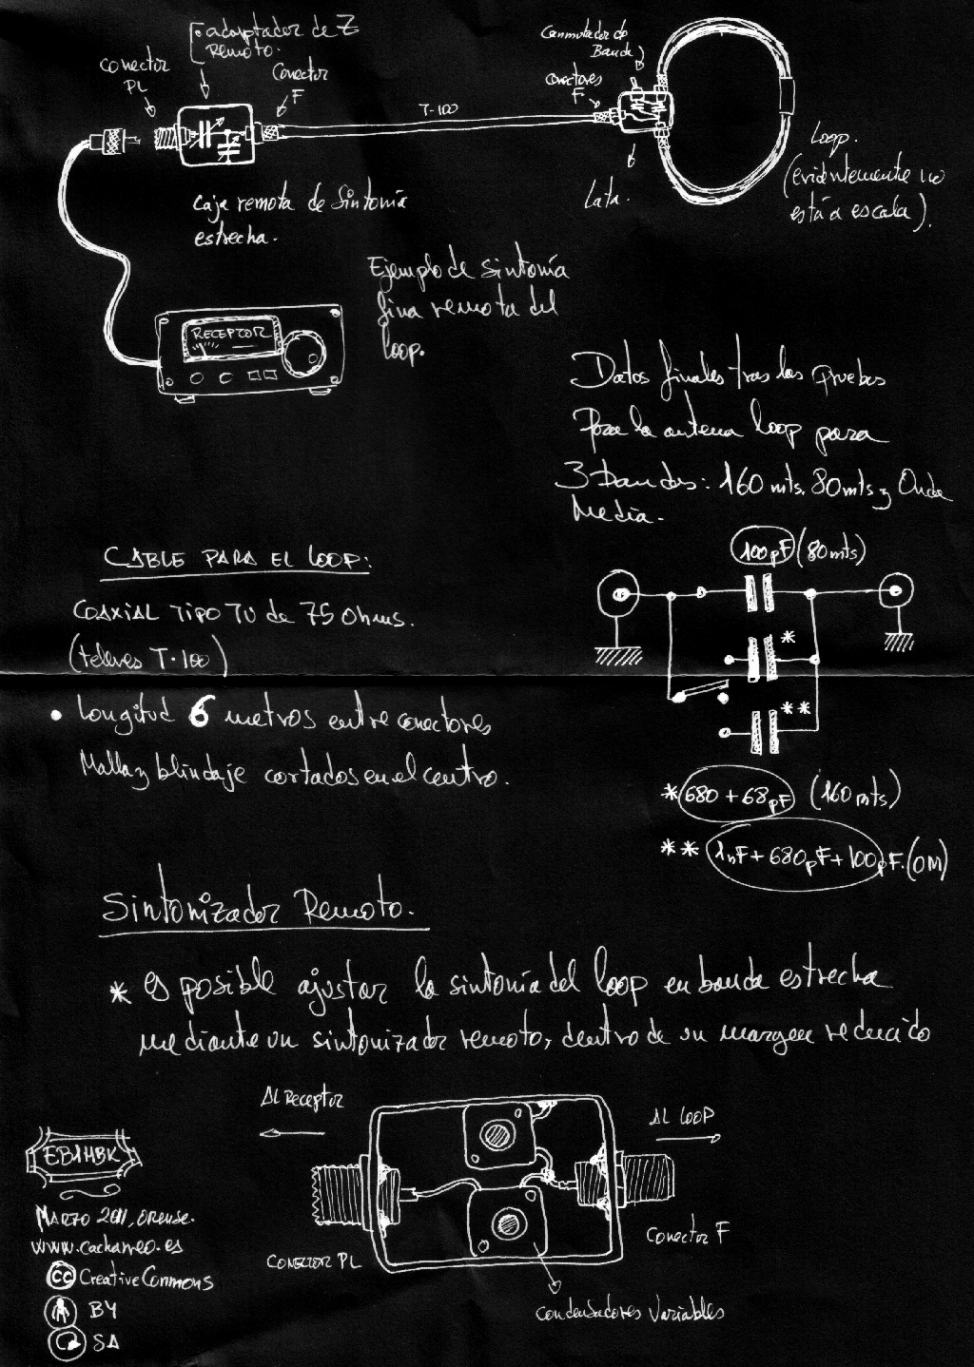 adaptador de Z
Remoto.
conector
PL
Conector
F
Conmutador de
Banda
Conectores
F
T-100
Loop.
(evidentemente no
está a escala).
Lata.
caja remota de Sintonía
estrecha.
Ejemplo de Sintonía
fina remota del
loop.
RECEPTOR
Datos finales tras las pruebas
Para la antena loop para
3 bandas: 160 mts. 80mts y Onda
Media.
100pF (80mts)
CABLE PARA EL LOOP:
COAXIAL TIPO TV de 75 Ohms.
(televes T-100)
• Longitud 6 metros entre conectores
Malla y blindaje cortados en el centro.
*
**
* 680 + 68pF (160 mts)
** 1nF + 680pF + 100pF. (OM)
Sintonizador Remoto.
* es posible ajustar la sintonía del loop en banda estrecha
mediante un sintonizador remoto, dentro de un margen reducido
AL Receptor
AL LOOP
CONECTOR PL
Conector F
condensadores variables
EB1HBK
MARZO 2011, ORENSE.
www.cacharreo.es
CC Creative Commons
BY
SA